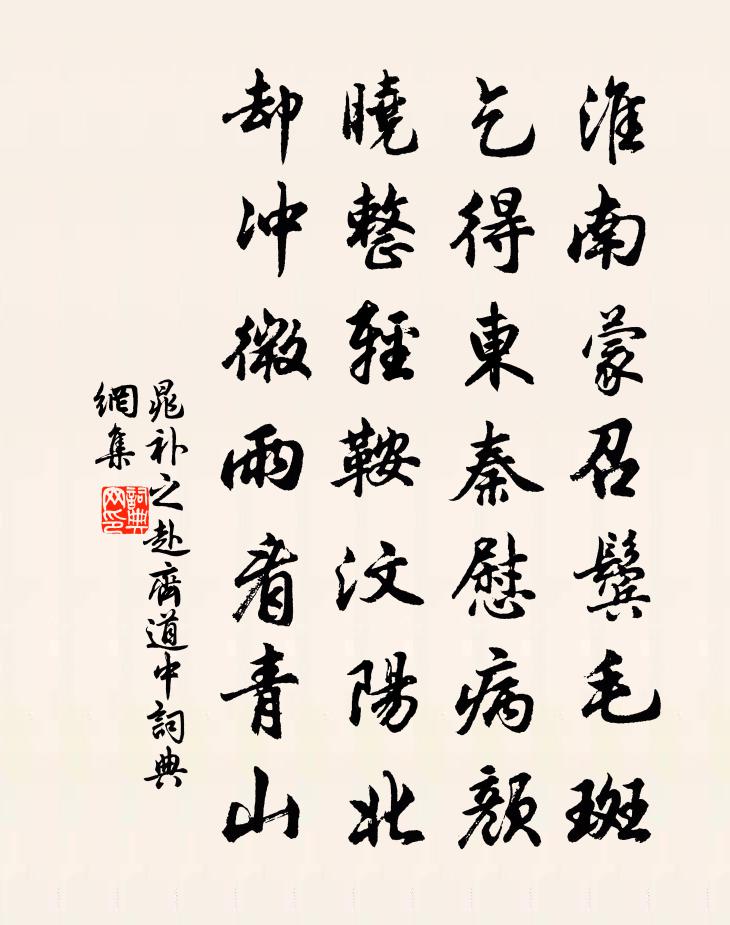 淮南蒙召鬢毛斑
乞得東秦慰病顔
曉整輕鞍汶陽北
却冲微雨看青山
晁补之赴齊道中詞典
網集
詞典
网印